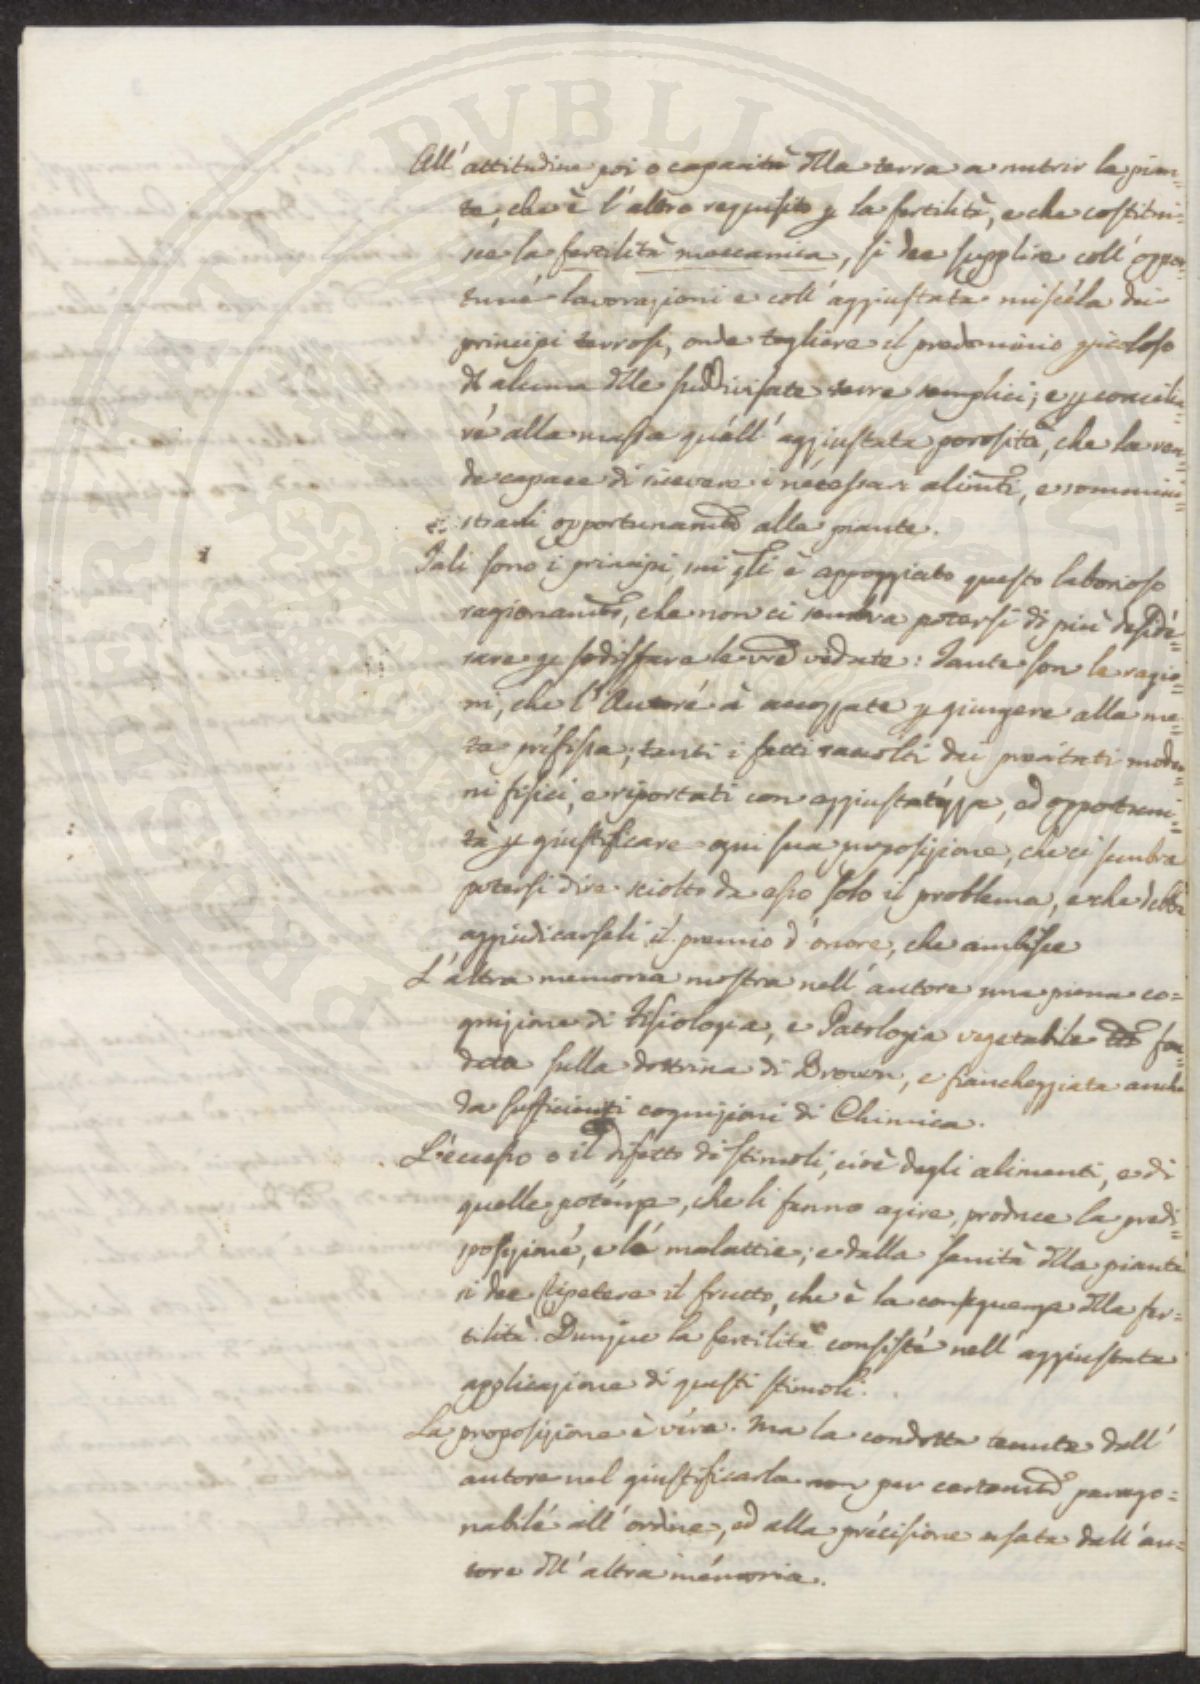 All' attitudine poi o capacità dlla terra a nutrir la pian=
ta, che è l'altro requisito p la fertilità, e che costitui=
sce la fertilità meccanica, si dee supplire coll' oppor=
tune lavorazioni e coll' aggiustata miscela dei
principi terrosi, onde togliere il predominio pricoloso
di alcuna dlle suddivisate terre semplici; e p concilia=
re alla massa quell' aggiustata porosità, che la ren=
de capace di ricevere i necessari alimti, e sommini=
strarli opportunamte alle piante.
Tali sono i principi, sui qli è appoggiato questo laborioso
ragionamto, che non ci sembra potersi di più deside=
rare p sodisfare le vre vedute: Tante son le ragio=
ni, che l'Autore à accoppate p giungere alla me=
ta prefissa; tanti i fatti raccolti dai precitati moder=
ni fisici, e riportati con aggiustatezza, ed opportuni=
tà p giustificare ogni sua proposizione, che ci sembra
potersi dire sciolto da esso solo il problema, e che debba
aggiudicarseli il premio d'onore, che ambisce
L'altra memoria mostra nell' autore una piena co=
gnizione di Fisiologia, e Patologia vegetabile fon=
data sulla dottrina di Brown, e fiancheggiata anche
da sufficienti cognizioni di Chimica.
L'eccesso o il difetto di stimoli, cioè degli alimenti, e di
quelle potenze, che li fanno agire, produce la predi=
sposizione, e le malattie; e dalla sanità dlla pianta
si dee ripetere il frutto, che è la conseguenza dlla fer=
tilità. Dunque la fertilità consiste nell' aggiustata
applicazione di questi stimoli.
La proposizione è vera. Ma la condotta tenuta dall'
autore nel giustificarla non per certamte parago=
nabile all' ordine, ed alla precisione usata dall' au=
tore dll' altra memoria.